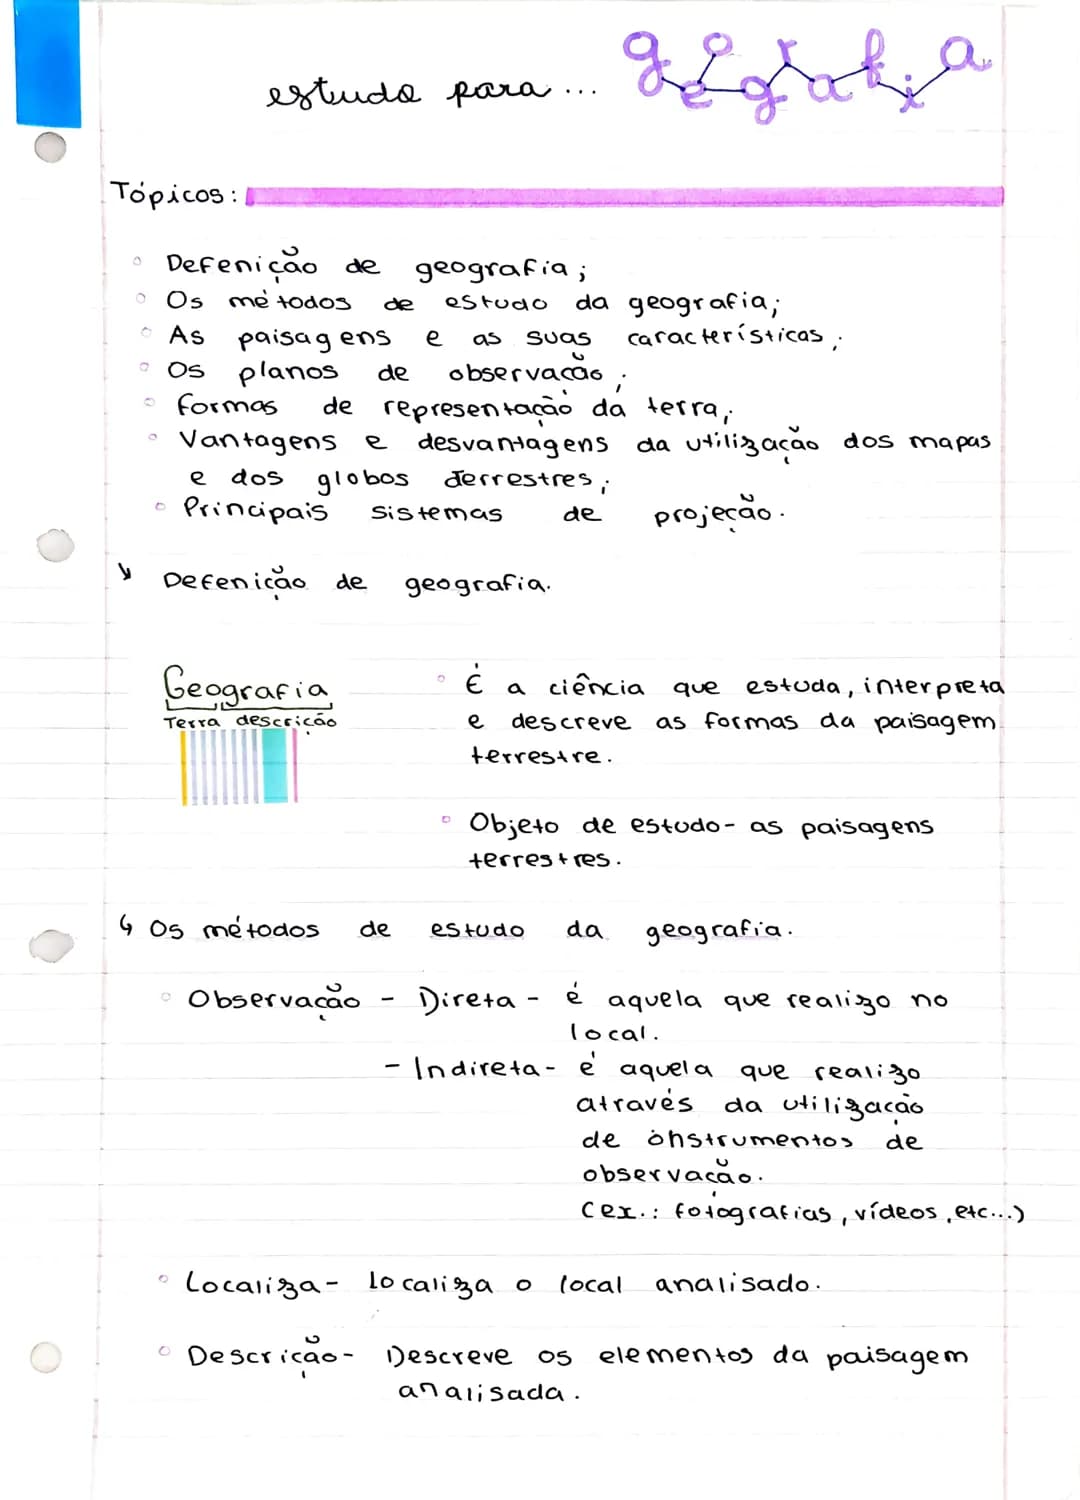 estudo para ... geografia
Tópicos:
Defenição de geografia;
Os métodos de estudo da geografia;
As paisagens e as suas características;
Os planos de observação;
formas de representação da terra;
Vantagens e desvantagens da utilização dos mapas
e dos globos terrestres;
Principais sistemas de projeção.
Defenição de geografia.
Geografia
Terra descrição
É a ciência que estuda, interpreta
e descreve as formas da paisagem
terrestre.
Objeto de estudo- as paisagens
terrestres.
Os métodos de estudo da geografia.
Observação - Direta - é aquela que realizo no
local.
- Indireta- é aquela que realizo
através da utilização
de instrumentos de
observação.
(ex.: fotografias, vídeos, etc...)
Localiza- localiza o local analisado.
Descrição- Descreve os elementos da paisagem
analisada.